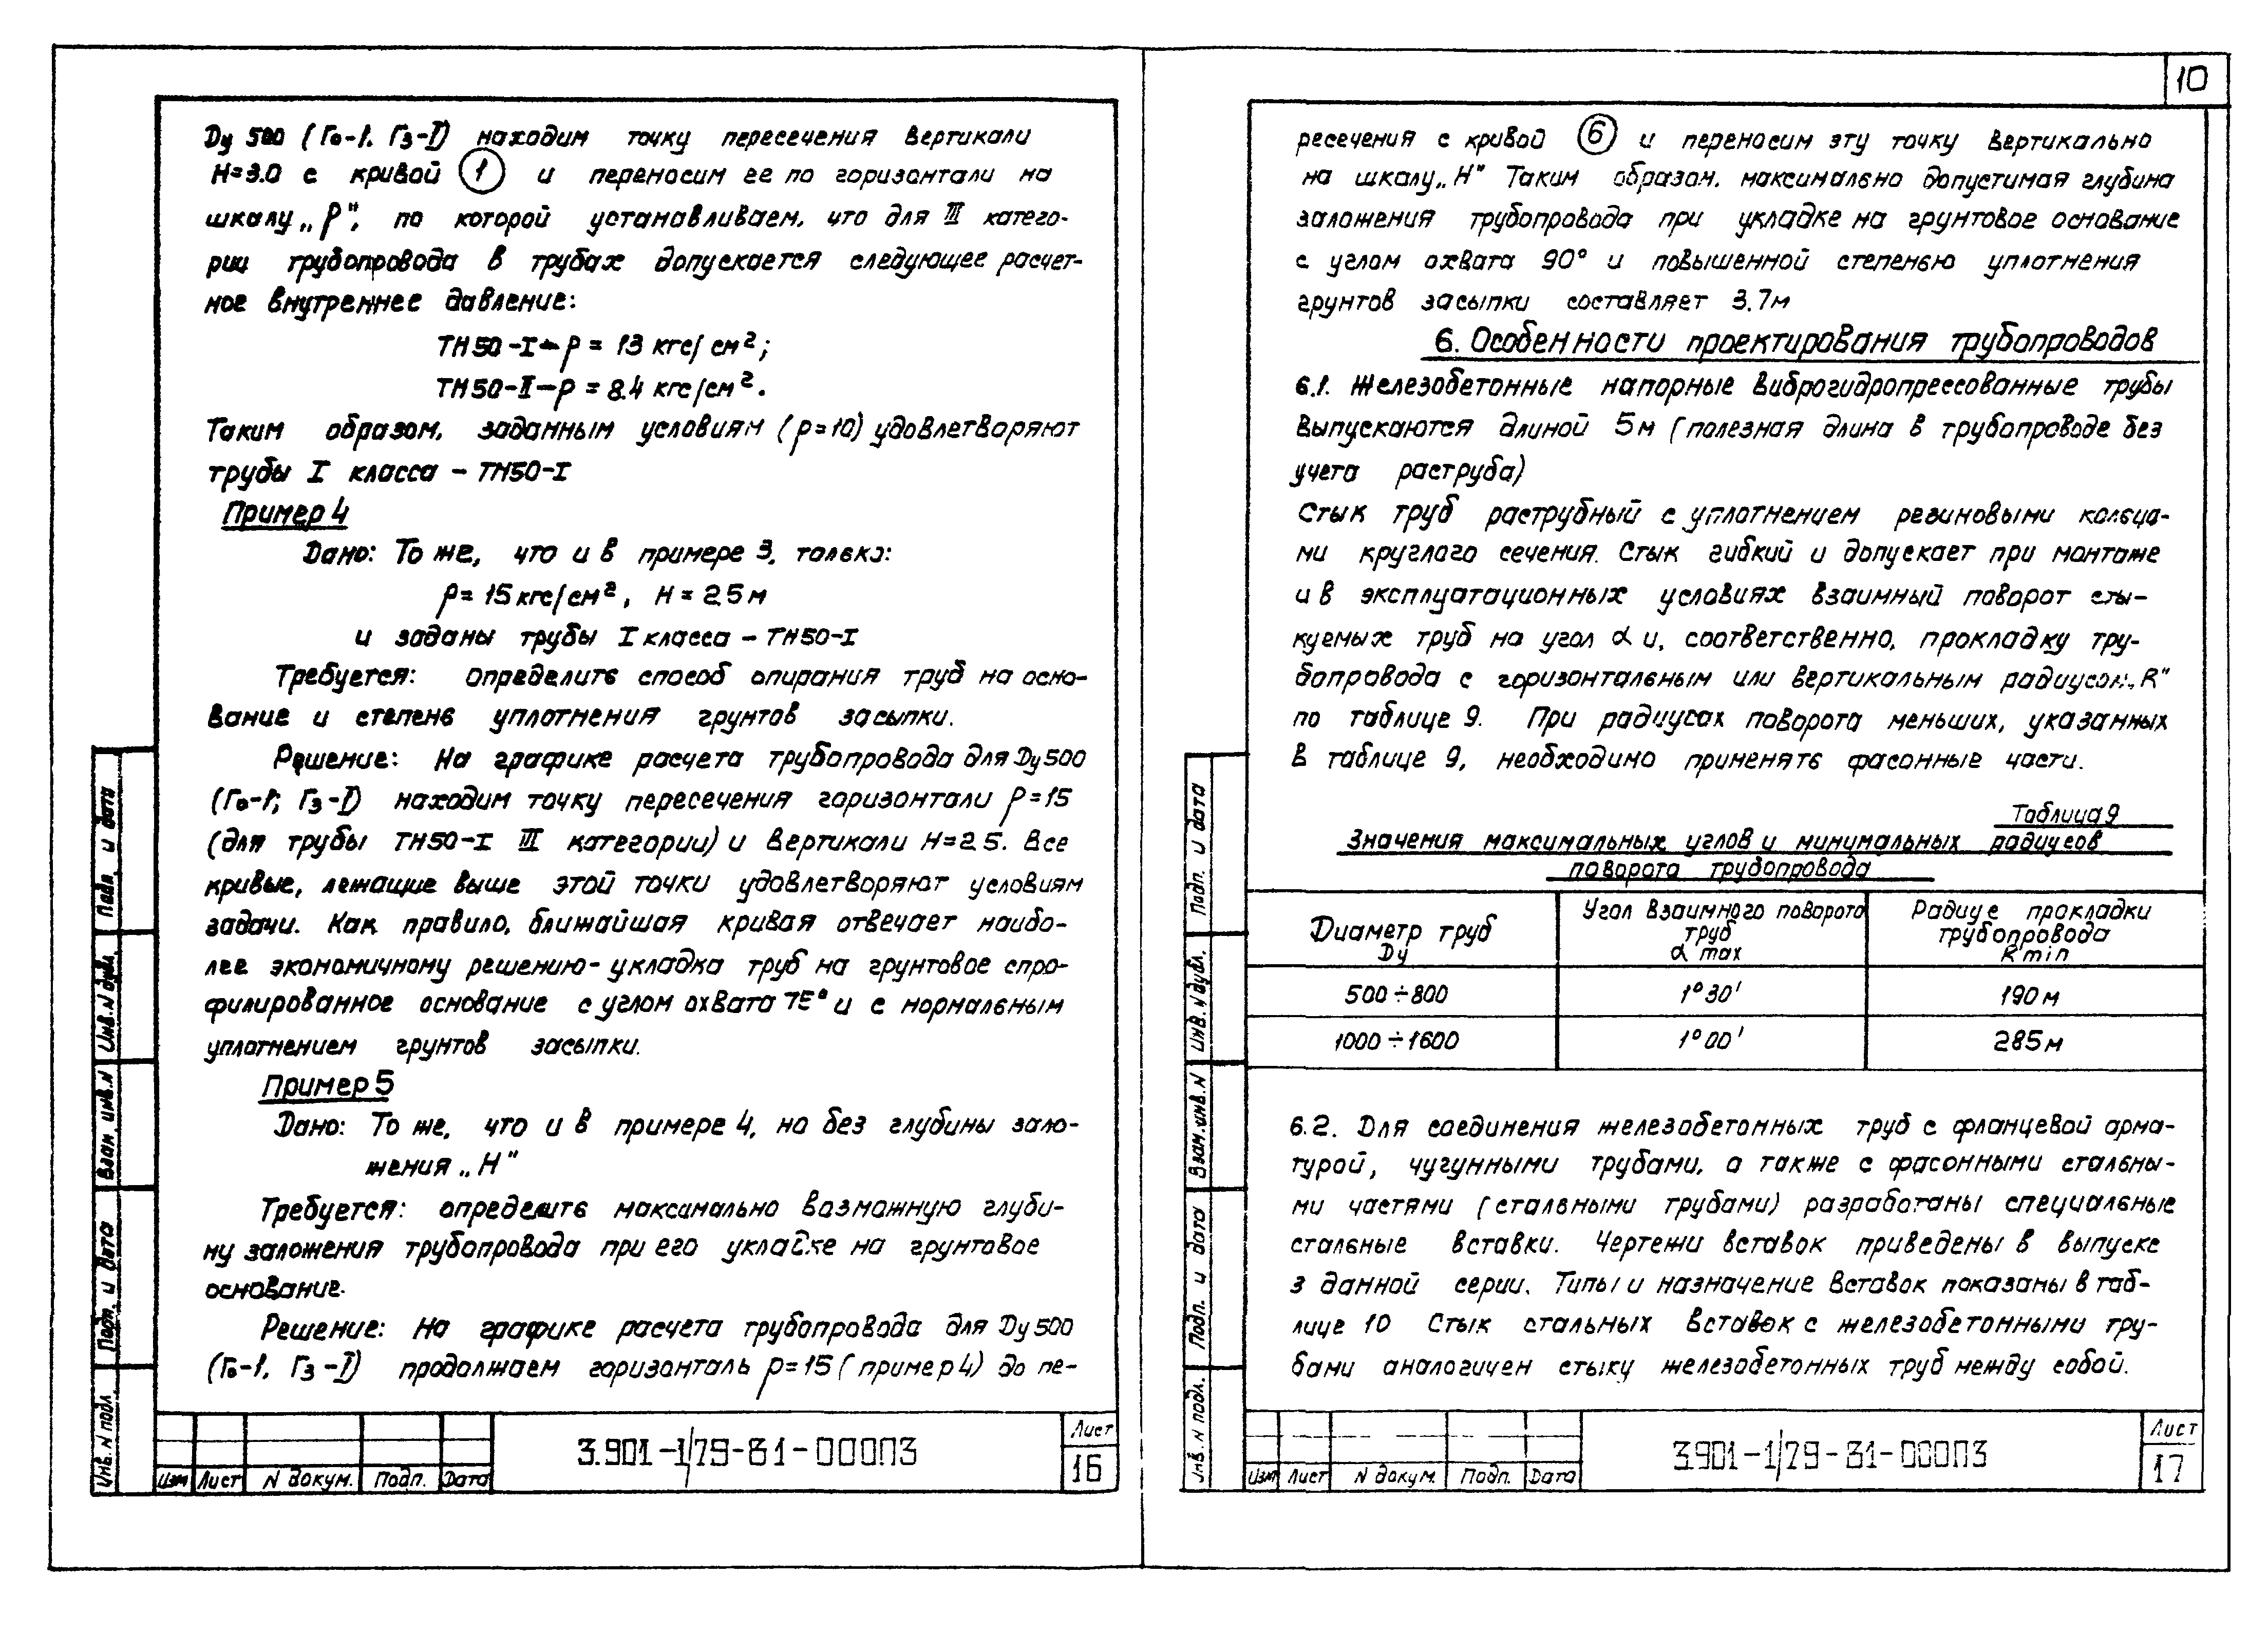 10
Ду 500 (Го-1. Гз-I) находим точку пересечения вертикали
Н=3.0 с кривой 1 и переносим ее по горизонтали на
шкалу „р", по которой устанавливаем, что для III катего-
рии трубопровода в трубах допускается следующее расчет-
ное внутреннее давление:
ТН50-I-р = 13 кгс/см²;
ТН50-II-р = 8.4 кгс/см².
Таким образом, заданным условиям (р=10) удовлетворяют
трубы I класса - ТН50-I
Пример 4
Дано: То же, что и в примере 3, только:
р=15 кгс/см², Н = 2.5 м
и заданы трубы I класса - ТН50-I
Требуется: определить способ опирания труб на осно-
вание и степень уплотнения грунтов засыпки.
Решение: На графике расчета трубопровода для Ду 500
(Го-1; Гз-I) находим точку пересечения горизонтали р=15
(для трубы ТН50-I III категории) и вертикали Н=2.5. Все
кривые, лежащие выше этой точки удовлетворяют условиям
задачи. Как правило, ближайшая кривая отвечает наибо-
лее экономичному решению-укладка труб на грунтовое спро-
филированное основание с углом охвата 75° и с нормальным
уплотнением грунтов засыпки.
Пример 5
Дано: То же, что и в примере 4, но без глубины зало-
жения „Н"
Требуется: определить максимально возможную глуби-
ну заложения трубопровода при его укладке на грунтовое
основание.
Решение: на графике расчета трубопровода для Ду 500
(Го-1. Гз-I) продолжаем горизонталь р=15 (пример 4) до пе-
Инв. N подл. Подп. и дата Взам инв. N Инв. N дубл. Подп. и дата
Изм Лист N докум. Подп. Дата
3.901-1/79-В1-00ПЗ
Лист
16
ресечения с кривой 6 и переносим эту точку вертикально
на шкалу „Н" Таким образом, максимально допустимая глубина
заложения трубопровода при укладке на грунтовое основание
с углом охвата 90° и повышенной степенью уплотнения
грунтов засыпки составляет 3.7м
6. Особенности проектирования трубопроводов
6.1. Железобетонные напорные виброгидропрессованные трубы
выпускаются длиной 5м (полезная длина в трубопроводе без
учета раструба)
Стык труб раструбный с уплотнением резиновыми кольца-
ми круглого сечения. Стык гибкий и допускает при монтаже
и в эксплуатационных условиях взаимный поворот сты-
куемых труб на угол α и, соответственно, прокладку тру-
бопровода с горизонтальным или вертикальным радиусом „R"
по таблице 9. При радиусах поворота меньших, указанных
в таблице 9, необходимо применять фасонные части.
Таблица 9
Значения максимальных углов и минимальных радиусов
поворота трубопровода
Диаметр труб Ду Угол взаимного поворота труб α max Радиус прокладки трубопровода R min
500÷800 1°30' 190м
1000÷1600 1°00' 285м
6.2. Для соединения железобетонных труб с фланцевой арма-
турой, чугунными трубами, а также с фасонными стальны-
ми частями (стальными трубами) разработаны специальные
стальные вставки. Чертежи вставок приведены в выпуске
3 данной серии. Типы и назначение вставок показаны в таб-
лице 10 Стык стальных вставок с железобетонными тру-
бами аналогичен стыку железобетонных труб между собой.
Инв. N подл. Подп. и дата Взам. инв. N Инв. N дубл. Подп. и дата
Изм Лист N докум. Подп. Дата
3.901-1/79-В1-00ПЗ
Лист
17